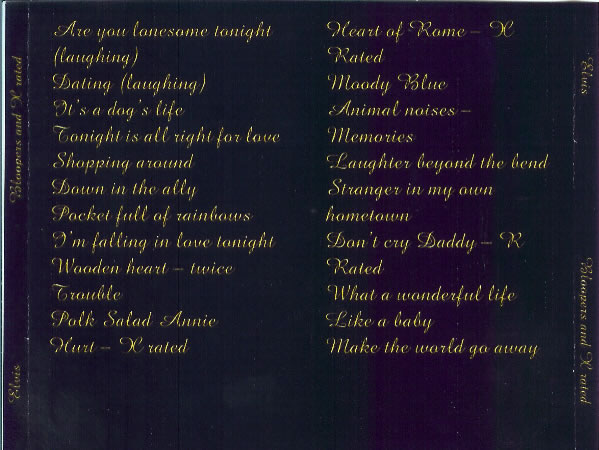 Are you lonesome tonight
(laughing)
Dating (laughing)
It's a dog's life
Tonight is all right for love
Shopping around
Down in the ally
Pocket full of rainbows
I'm falling in love tonight
Wooden heart – twice
Trouble
Polk Salad Annie
Hurt – X rated
Heart of Rome – X
Rated
Moody Blue
Animal noises –
Memories
Laughter beyond the bend
Stranger in my own
hometown
Don't cry Daddy – R
Rated
What a wonderful life
Like a baby
Make the world go away
Bloopers and X rated
Elvis
Elvis
Bloopers and X rated